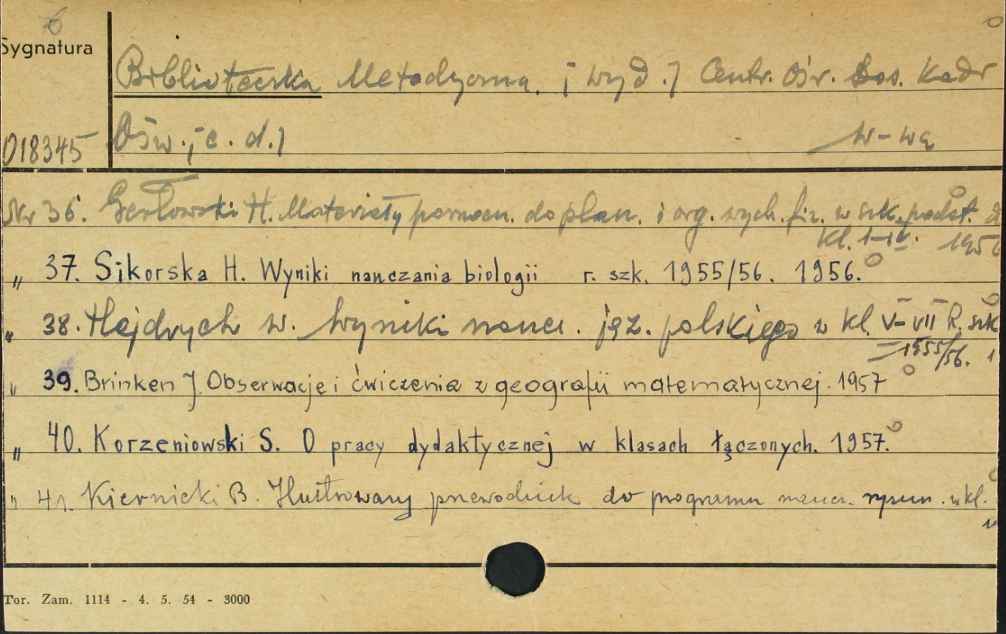 6
Sygnatura
Biblioteczka Metodyczna. [wyd.] Centr. Ośr. Dos. Kadr
018345 Ośw. [c. d.] W-wa
Nr 36. H. Materiały pomocn. do plan. i org. wych. fiz. w szk. podst.
kl. I-IV. 195
„ 37. Sikorska H. Wyniki nauczania biologii r. szk. 1955/56. 1956.
„ 38. Hejdrych W. Wyniki naucz. jęz. polskiego w kl. V-VII R. szk
1955/56. 1
„ 39. Brinken J. Obserwacje i ćwiczenia z geografii matematycznej. 1957
„ 40. Korzeniowski S. O pracy dydaktycznej w klasach łączonych. 1957.
„ 41. Kiernicki B. Ilustrowany przewodnik do programu naucz. rysun. w kl.
Tor. Zam. 1114 - 4. 5. 54 - 3000